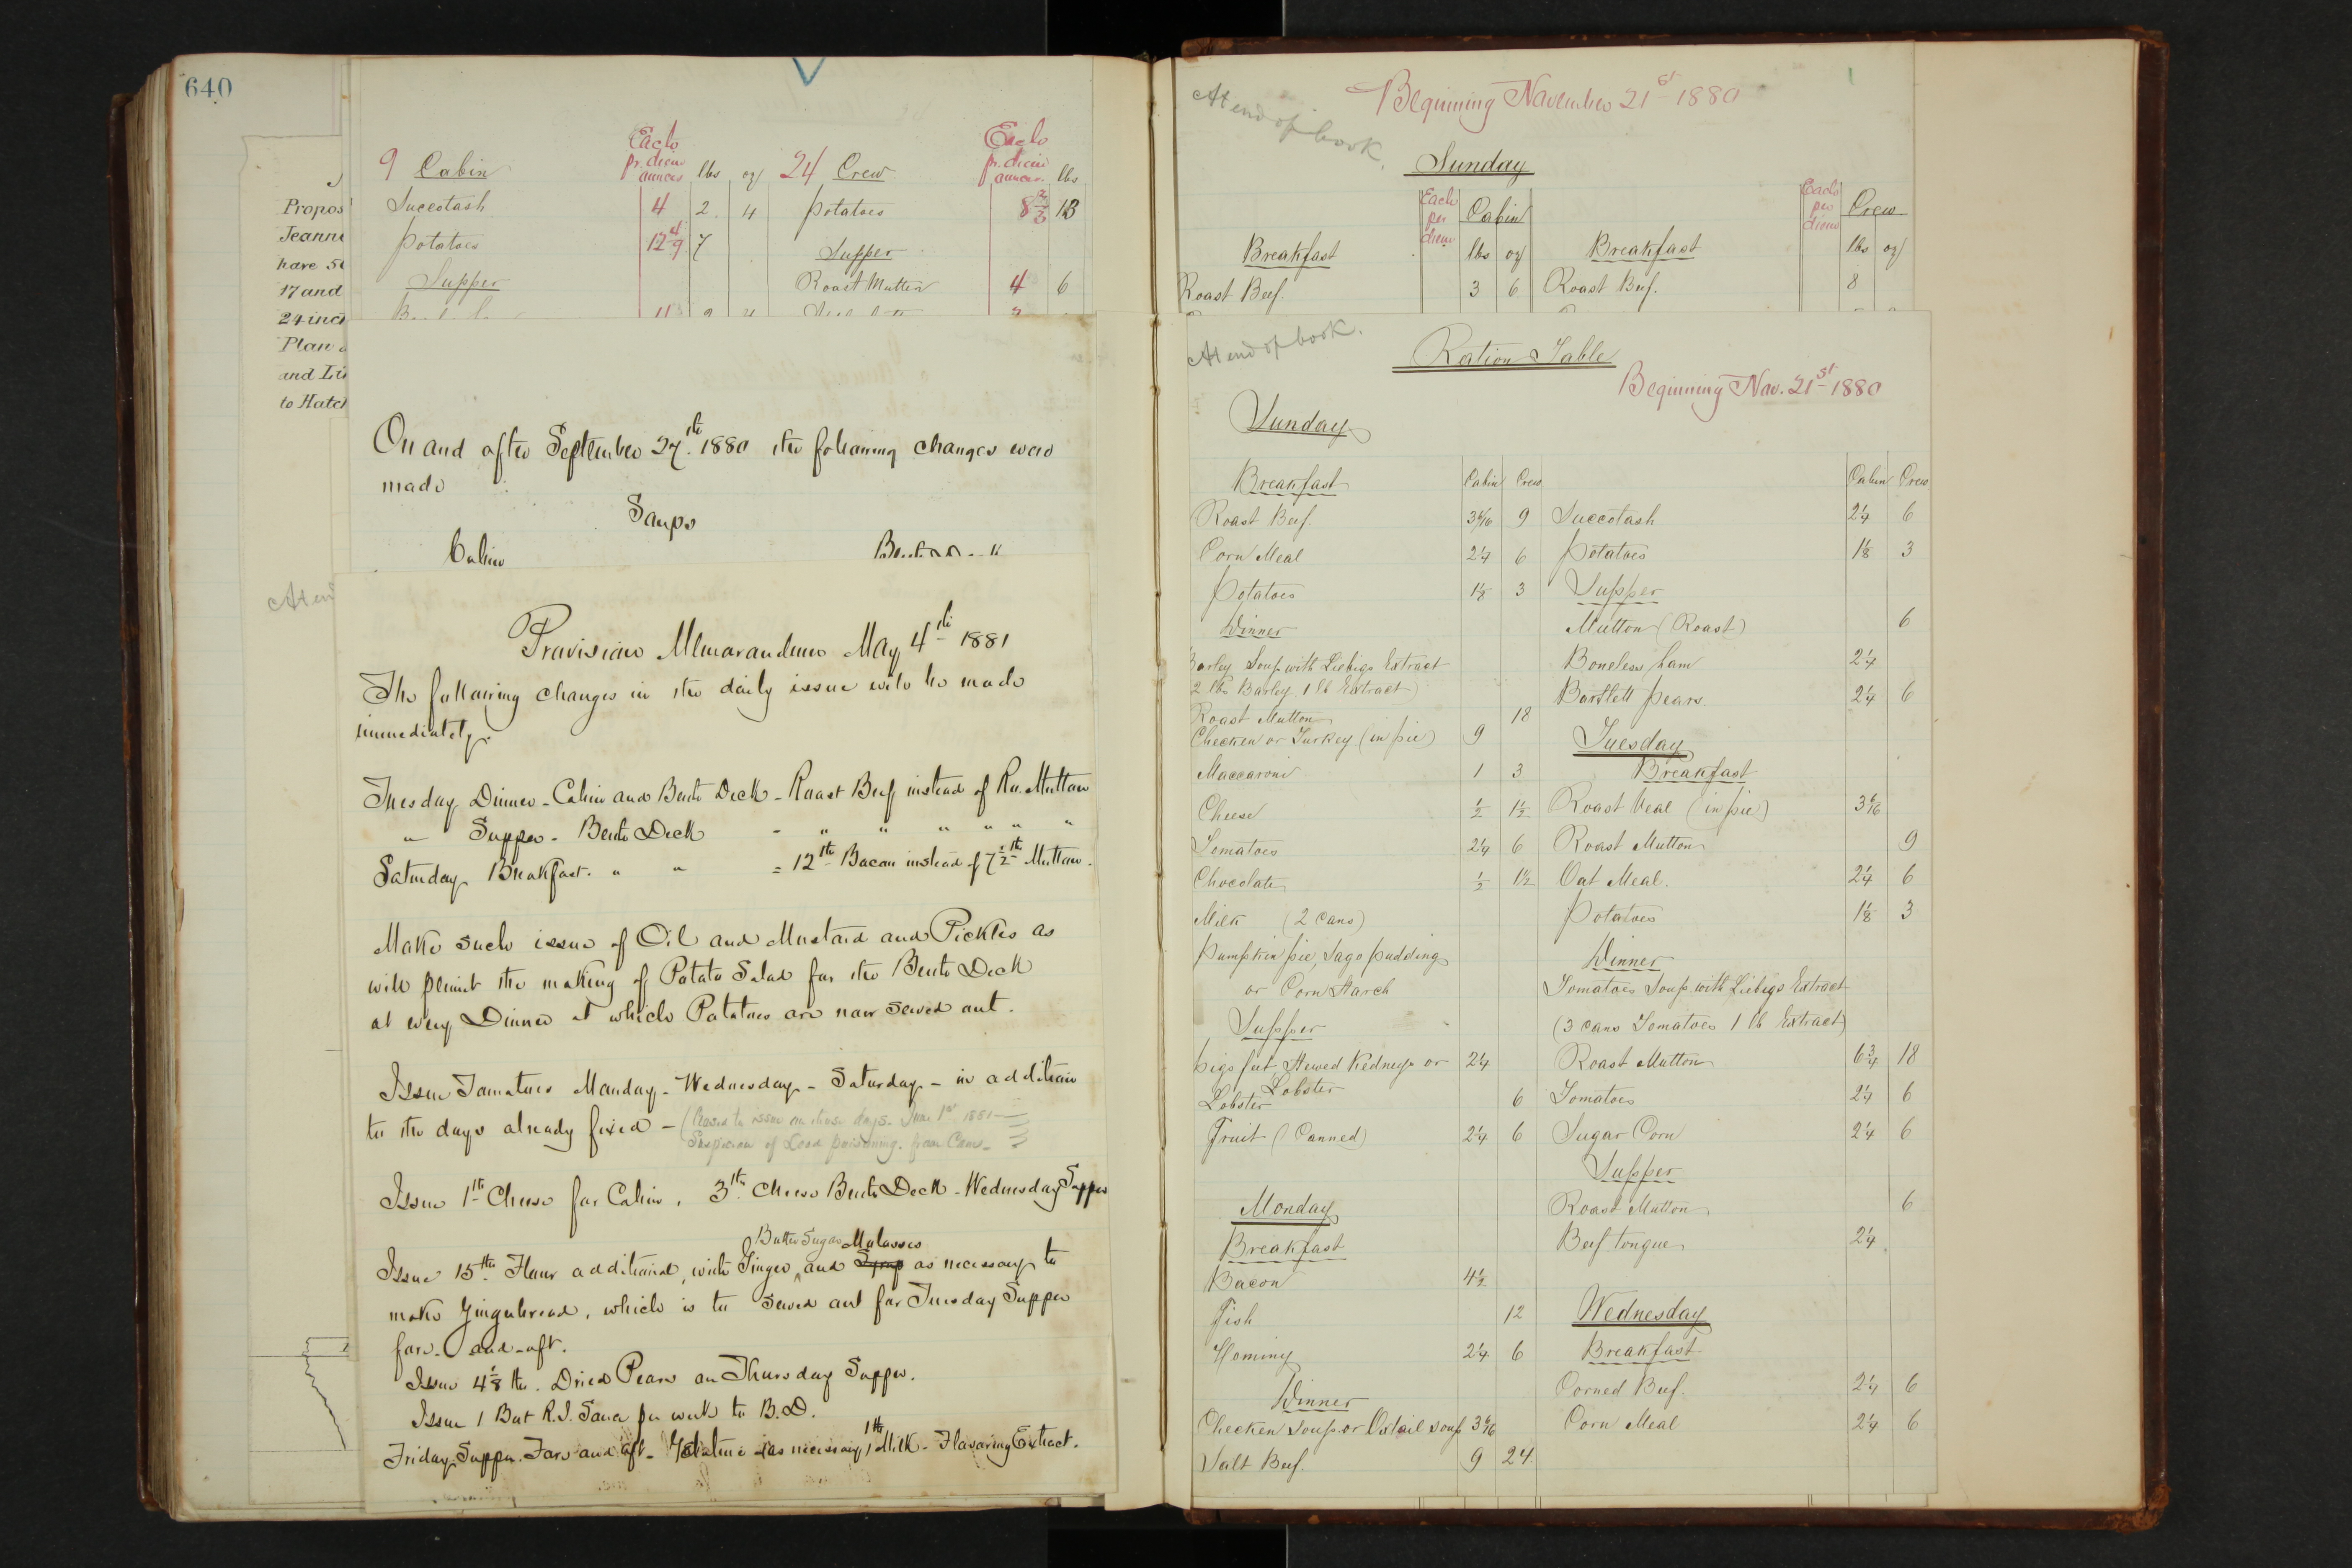 640
Propos
Jeann
have 5
17 and
24 inc
Plan
and Li
to Hatc
At en
9 Cabin Each pr. diem ounces lbs oz 24 Crew Each pr. diem ounces lbs
Succotash 4 2 4 Potatoes 8 2/3 13
Potatoes 12 4/9 7 Supper
Supper Roast Mutton 4 6
On and after September 27th 1880 the following changes were
made
Soups
Cabin
Provision Memorandum May 4th 1881
The following changes in the daily issue will be made
immediately.
Tuesday Dinner - Cabin and Berth Deck - Roast Beef instead of Ro. Mutton
" Supper - Berth Deck - " " " " " "
Saturday Breakfast. " " = 12 lb Bacon instead of 7 1/2 lb Mutton.
Make such issue of Oil and Mustard and Pickles as
will permit the making of Potato Salad for the Berth Deck
at every Dinner at which Potatoes are now served out.
Issue Tomatoes Monday - Wednesday - Saturday - in addition
to the days already fixed - (Ceased to issue on those days. June 1st 1881
Suspicion of Lead poisoning. from Cans -
Issue 1 lb Cheese for Cabin, 3 lb. Cheese Berth Deck - Wednesday Supper
Butter Sugar Molasses
Issue 15 lb. Flour additional, with Ginger, and Syrup as necessary to
make Gingerbread, which is to served out for Tuesday Supper
fore - and - aft.
Issue 4 1/8 lb. Dried Pears on Thursday Supper.
Issue 1 Bot R.I. Sauce per week to B.D.
Friday Supper. Fore and aft - Gelatine as necessary, 1 lb Milk - Flavoring Extract.
At end of book.
Beginning November 21st 1880
Sunday
Each per diem Cabin Each per diem Crew
Breakfast lbs oz Breakfast lbs oz
Roast Beef. 3 6 Roast Beef. 8
At end of book.
Ration Table
Beginning Nov. 21st 1880
Sunday
Breakfast Cabin Crew
Roast Beef. 3 6/16 9
Corn Meal 2 1/4 6
Potatoes 1 1/8 3
Dinner
Barley Soup with Liebigs Extract
2 lbs Barley 1 lb Extract)
Roast Mutton 18
Checken or Turkey (in pie) 9
Maccaroni 1 3
Cheese 1/2 1 1/2
Tomatoes 2 1/4 6
Chocolate 1/2 1 1/2
Milk (2 cans)
Pumpkin pie, Sago pudding
or Corn Starch
Supper
Pigs feet, Stewed Kidneys or 2 1/4
Lobster
Lobster 6
Fruit (Canned) 2 1/4 6
Monday
Breakfast
Bacon 4 1/2
Fish 12
Hominy 2 1/4 6
Dinner
Checken soup or Oxtail soup 3 6/16
Salt Beef. 9 24
Cabin Crew
Succotash 2 1/4 6
Potatoes 1 1/8 3
Supper
Mutton (Roast) 6
Boneless ham 2 1/4
Bartlett pears. 2 1/4 6
Tuesday
Breakfast
Roast Veal (in pie) 3 6/16
Roast Mutton 9
Oat Meal. 2 1/4 6
Potatoes 1 1/8 3
Dinner
Tomatoes Soup with Liebigs Extract
(3 cans Tomatoes 1 lb Extract)
Roast Mutton 6 3/4 18
Tomatoes 2 1/4 6
Sugar Corn 2 1/4 6
Supper
Roast Mutton 6
Beef tongue 2 1/4
Wednesday
Breakfast
Corned Beef. 2 1/4 6
Corn Meal 2 1/4 6